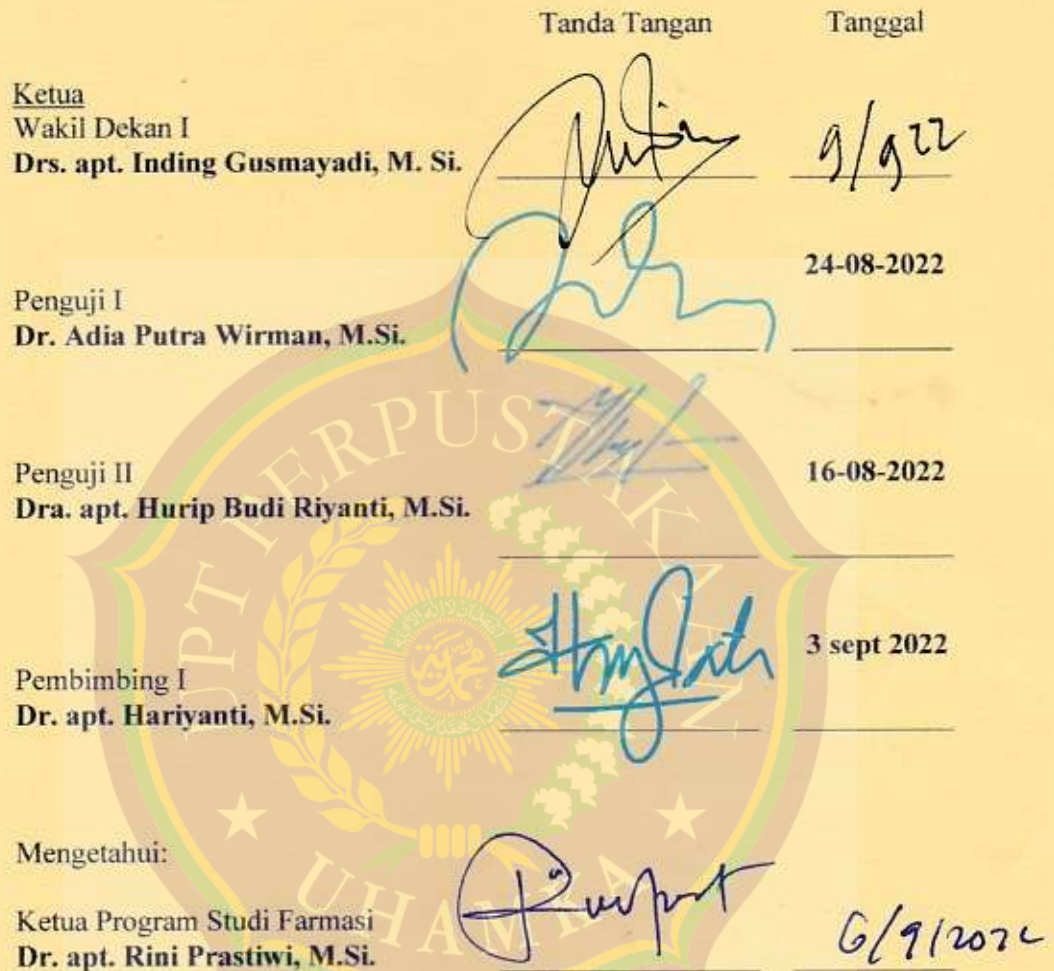 Tanda Tangan Tanggal
Ketua
Wakil Dekan I
Drs. apt. Inding Gusmayadi, M. Si.
9/9 22
24-08-2022
Penguji I
Dr. Adia Putra Wirman, M.Si.
16-08-2022
Penguji II
Dra. apt. Hurip Budi Riyanti, M.Si.
3 sept 2022
Pembimbing I
Dr. apt. Hariyanti, M.Si.
Mengetahui:
Ketua Program Studi Farmasi
Dr. apt. Rini Prastiwi, M.Si.
6/9/2022
UPT PERPUSTAKAAN
UHAMKA